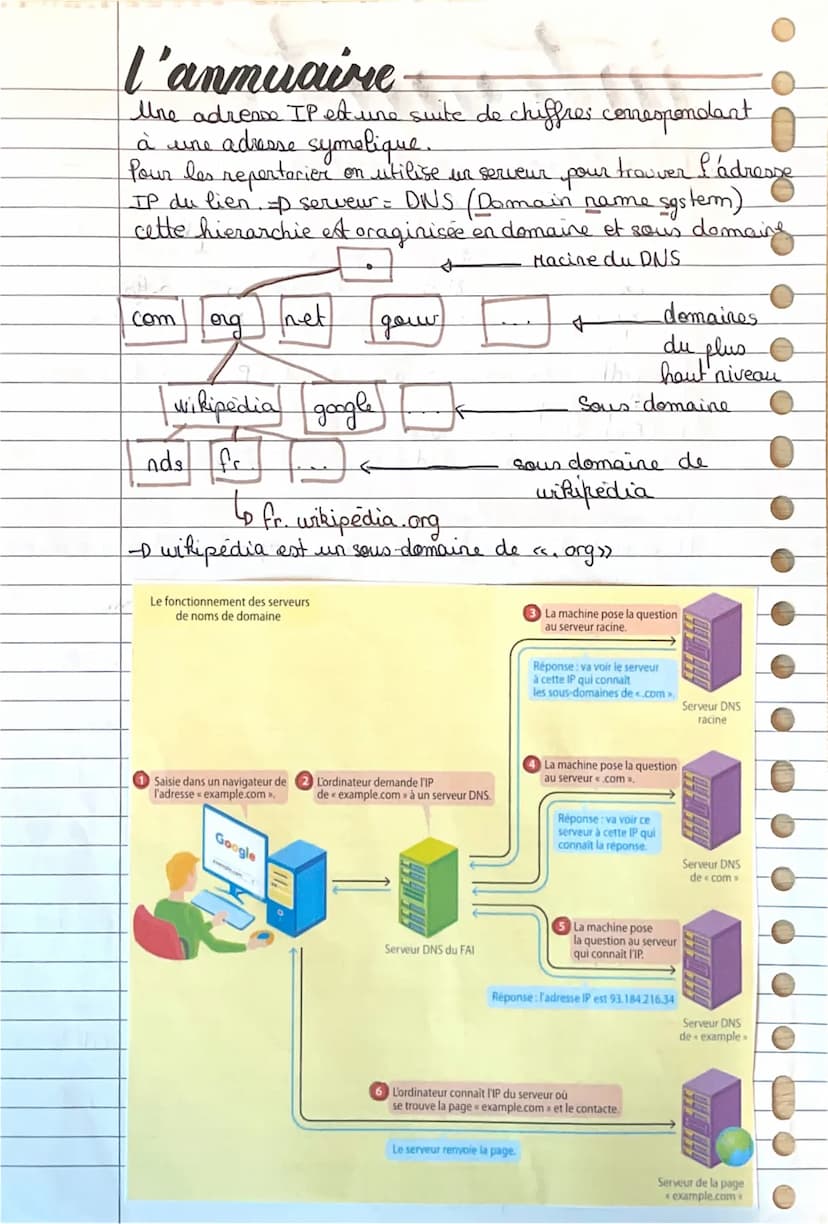 l'annuaire
Une adresse IP est une suite de chiffres correspondant
à une adresse symolique.
Pour les repertorier on utilise un serveur pour trouver l'adresse
IP du lien. => serveur = DNS (Domain name system)
cette hierarchie est oraginisée en domaine et sous domaine
. ← Racine du DNS
com org net gouv ... ← domaines
du plus
haut niveau
wikipédia google ... ← Sous-domaine
nds fr ... ← sous domaine de
wikipédia
↳ fr. wikipédia.org
→ wikipédia est un sous-domaine de «.org»
Le fonctionnement des serveurs
de noms de domaine
1 Saisie dans un navigateur de
l'adresse « example.com ».
Google
2 L'ordinateur demande l'IP
de « example.com » à un serveur DNS.
Serveur DNS du FAI
3 La machine pose la question
au serveur racine.
Réponse : va voir le serveur
à cette IP qui connaît
les sous-domaines de « .com ».
Serveur DNS
racine
4 La machine pose la question
au serveur « .com ».
Réponse : va voir ce
serveur à cette IP qui
connaît la réponse.
Serveur DNS
de « com »
5 La machine pose
la question au serveur
qui connaît l'IP.
Réponse : l'adresse IP est 93.184.216.34
Serveur DNS
de « example »
6 L'ordinateur connaît l'IP du serveur où
se trouve la page « example.com » et le contacte.
Le serveur renvoie la page.
Serveur de la page
« example.com »